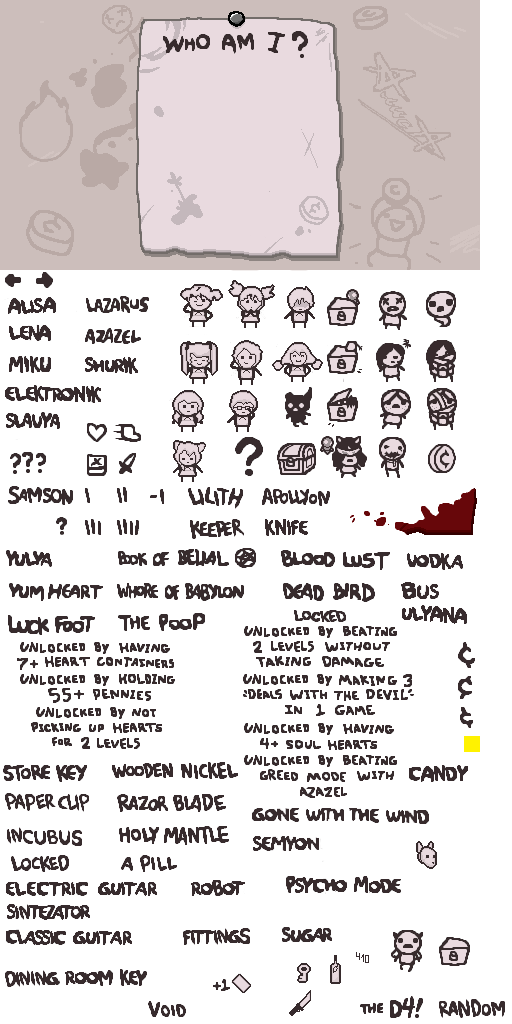 WHO AM I?
ALISA LAZARUS
LENA AZAZEL
MIKU SHURIK
ELEKTRONIK
SLAVYA
???
?
SAMSON I II -I LILITH APOLLYON
? III IIII KEEPER KNIFE
YULYA BOOK OF BELIAL BLOOD LUST VODKA
YUM HEART WHORE OF BABYLON DEAD BIRD BUS
LUCK FOOT THE POOP LOCKED ULYANA
UNLOCKED BY HAVING
7+ HEART CONTAINERS
UNLOCKED BY HOLDING
55+ PENNIES
UNLOCKED BY NOT
PICKING UP HEARTS
FOR 2 LEVELS
UNLOCKED BY BEATING
2 LEVELS WITHOUT
TAKING DAMAGE
UNLOCKED BY MAKING 3
"DEALS WITH THE DEVIL"
IN 1 GAME
UNLOCKED BY HAVING
4+ SOUL HEARTS
UNLOCKED BY BEATING
GREED MODE WITH
AZAZEL
¢
¢
¢
STORE KEY WOODEN NICKEL CANDY
PAPER CLIP RAZOR BLADE
GONE WITH THE WIND
INCUBUS HOLY MANTLE
SEMYON
LOCKED A PILL
ELECTRIC GUITAR ROBOT PSYCHO MODE
SINTEZATOR
CLASSIC GUITAR FITTINGS SUGAR
410
DINING ROOM KEY +1
VOID THE D4! RANDOM